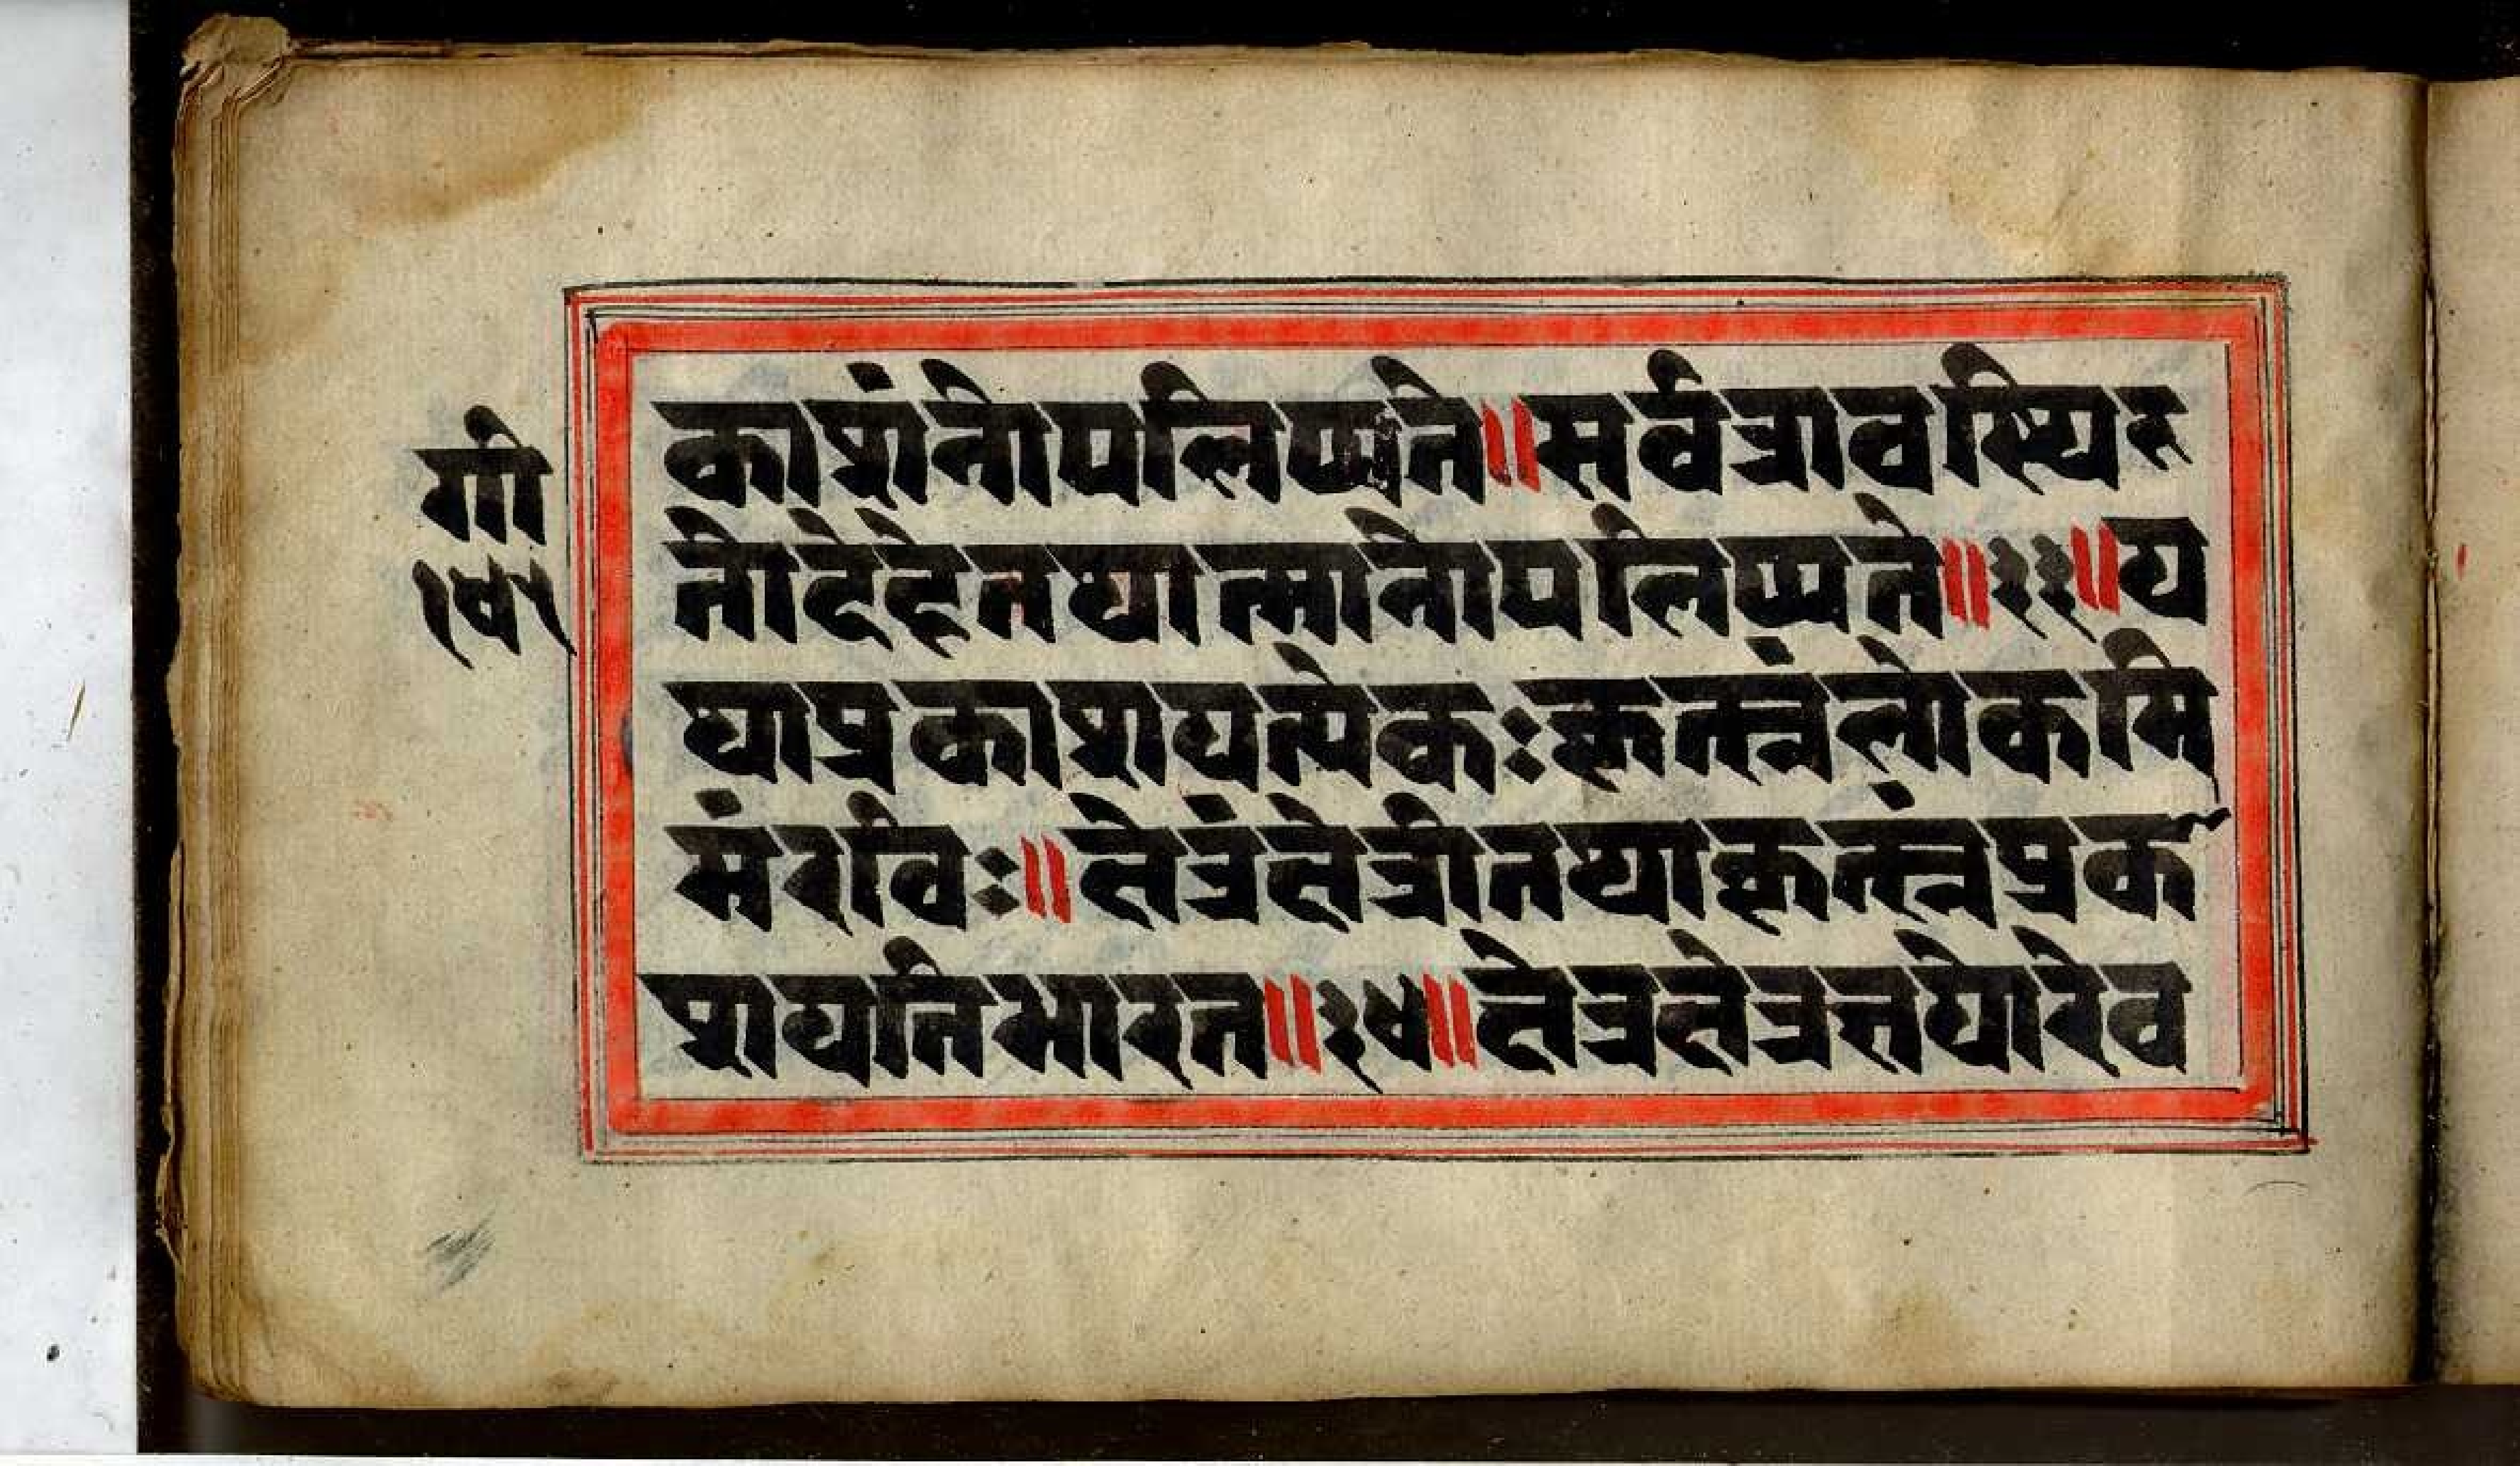 गी
१४५
काशंनोपलिप्यते॥सर्वत्रावस्थि
तोदेहेतथात्मानोपलिप्यते॥३३॥य
थाप्रकाशयत्येकःकृत्स्नंलोकमि
मंरविः॥क्षेत्रंक्षेत्रीतथाकृत्स्नंप्रका
शयतिभारत॥३४॥क्षेत्रक्षेत्रज्ञयोरेव